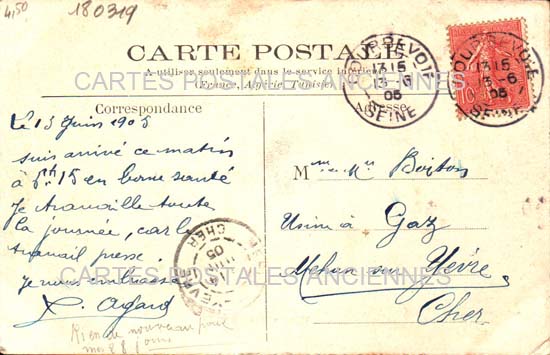 4,50
180319
CARTE POSTALE
A utiliser seulement dans le service intérieur
(France, Algérie, Tunisie)
Correspondance
COURBEVOIE
13 15
13-6
05
SEINE
COURBEVOIE
13 15
13-6
05
SEINE
10
CARTES POSTALES ANCIENNES
Le 13 Juin 1905
suis arrivé ce matin
à 5h 15 en bonne santé
Je travaille toute
la journée, car le
travail presse.
Je vous embrasse
Rien de nouveau pour
mes 28 jours
Mme & Mr
Usine à Gaz
Mehun sur Yèvre
Cher
CHER
05
CARTES POSTALES ANCIENNES